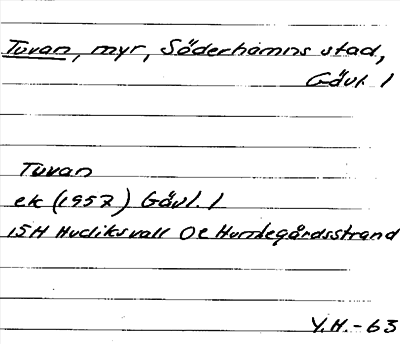 Tuvan, myr, Söderhamns stad,
Gävl. l
Tuvan
ek (1957) Gävl. l
15H Hudiksvall 0e Humlegårdsstrand
Y.H. - 63